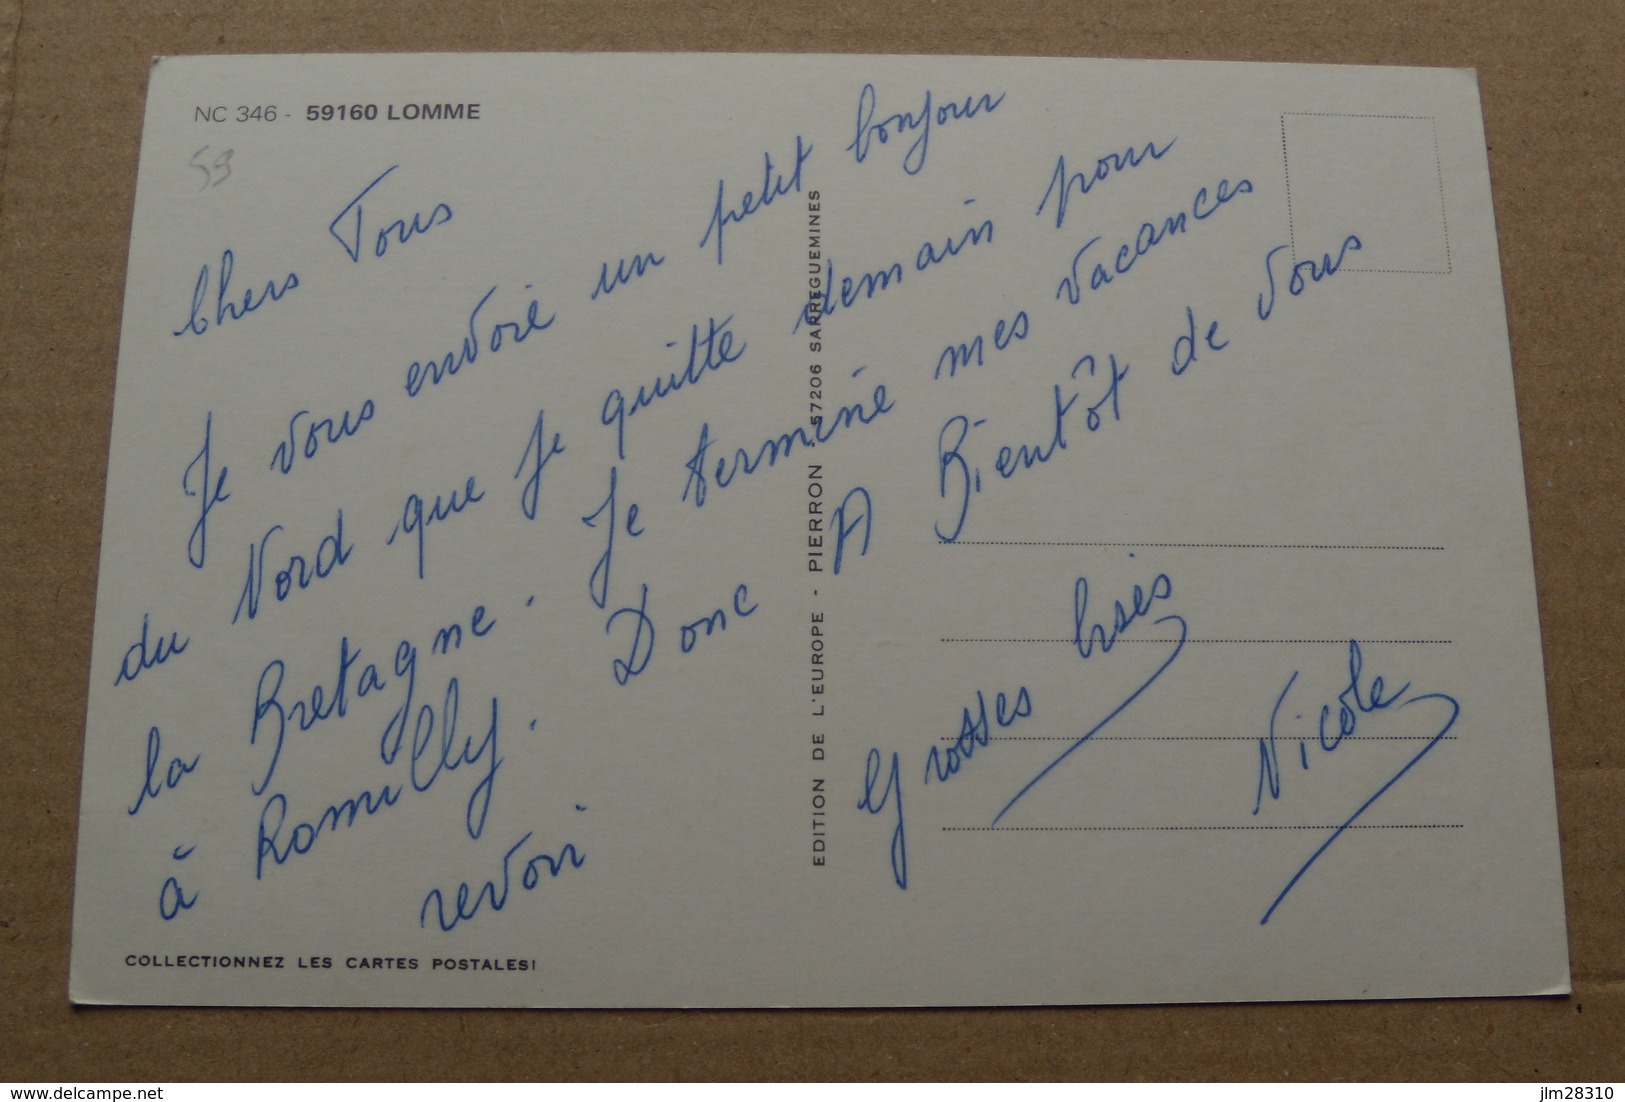 NC 346 - 59160 LOMME
59
Chers Tous
Je vous envoie un petit bonjour
du Nord que je quitte demain pour
la Bretagne. Je terminé mes vacances
à Romilly. Donc A Bientôt de vous
revoir
Grosses bises
Nicole
EDITION DE L'EUROPE - PIERRON - 57206 SARREGUEMINES
COLLECTIONNEZ LES CARTES POSTALES!
delcampe.net
jlm28310